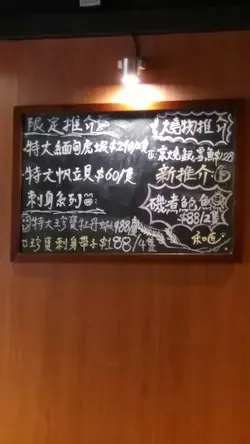 限定推介
特大緬甸虎蝦
特大帆立貝$60/隻
刺身系列
特大珍寶牡丹蝦$88/隻
珍寶刺身帶子$188/4隻
燒物推介
京燒銀雪魚$128
新推介
磯煮鮑魚
$88/2隻